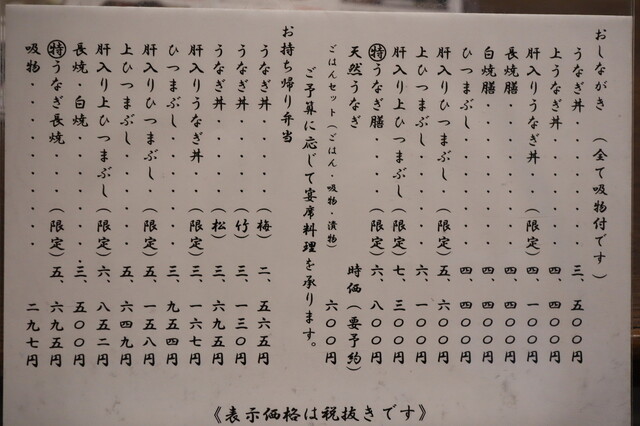 おしながき (全て吸物付です)
うなぎ丼・・・・・三、五〇〇円
上うなぎ丼・・・・四、四〇〇円
肝入りうなぎ丼・・(限定)四、一〇〇円
長焼膳・・・・・四、四〇〇円
白焼膳・・・・・四、四〇〇円
ひつまぶし・・・・四、四〇〇円
肝入りひつまぶし・(限定)五、六〇〇円
上ひつまぶし・・・・六、一〇〇円
肝入り上ひつまぶし(限定)七、三〇〇円
㊕うなぎ膳・・・・(限定)六、八〇〇円
天然うなぎ 時価(要予約)
ごはんセット(ごはん・吸物・漬物) 六〇〇円
ご予算に応じて宴席料理を承ります。
お持ち帰り弁当
うなぎ丼・・・・(梅)二、五六五円
うなぎ丼・・・・(竹)三、一三〇円
うなぎ丼・・・・(松)三、六九五円
肝入りうなぎ丼・・(限定)三、一六七円
ひつまぶし・・・・・三、九五四円
肝入りひつまぶし・(限定)五、一五八円
上ひつまぶし・・・・五、六四九円
肝入り上ひつまぶし(限定)六、八五二円
長焼・白焼・・・・・三、五〇〇円
㊕うなぎ長焼・・・(限定)五、六九五円
吸物・・・・・・・・二九七円
《表示価格は税抜きです》